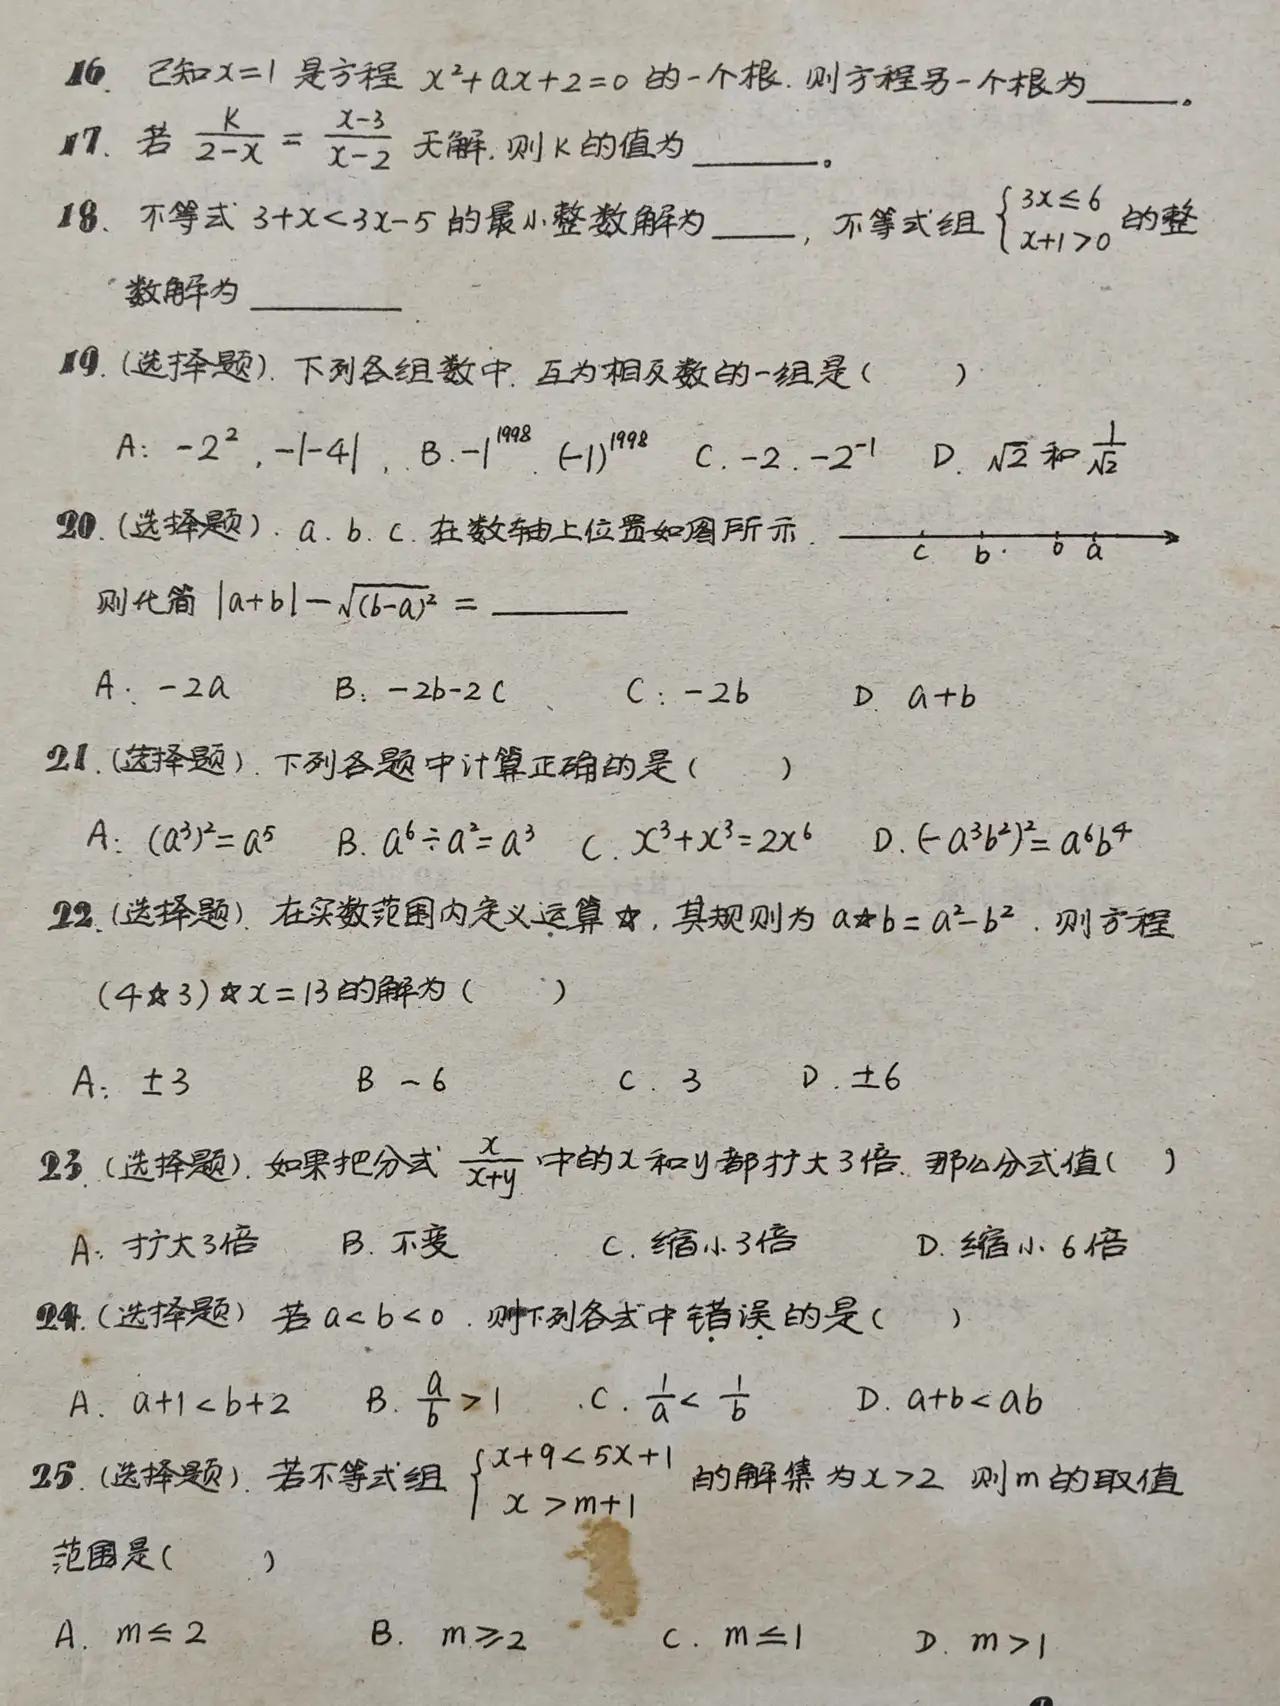 16. 已知x=1是方程 x²+ax+2=0 的一个根.则方程另一个根为_____。
17. 若 K/(2-x) = (x-3)/(x-2) 无解.则K的值为_______。
18. 不等式 3+x<3x-5 的最小整数解为____，不等式组 { 3x≤6 x+1>0 的整
数解为________
19. (选择题). 下列各组数中.互为相反数的一组是(　　)
A: -2², -|-4|, B. -1¹⁹⁹⁸. (-1)¹⁹⁹⁸ C. -2. -2⁻¹ D. √2 和 1/√2
20. (选择题). a. b. c. 在数轴上位置如图所示. c b 0 a
则化简 |a+b|-√(b-a)² = _______
A: -2a B: -2b-2c C: -2b D. a+b
21. (选择题). 下列各题中计算正确的是(　　)
A: (a³)²=a⁵ B. a⁶÷a²=a³ C. x³+x³=2x⁶ D. (-a³b²)²=a⁶b⁴
22. (选择题). 在实数范围内定义运算☆，其规则为 a☆b=a²-b². 则方程
(4☆3)☆x=13的解为(　　)
A: ±3 B -6 C. 3 D. ±6
23. (选择题). 如果把分式 x/(x+y) 中的x和y都扩大3倍.那么分式值(　　)
A: 扩大3倍 B. 不变 C. 缩小3倍 D. 缩小6倍
24. (选择题) 若a<b<0. 则下列各式中错误的是(　　)
A. a+1<b+2 B. a/b>1 C. 1/a<1/b D. a+b<ab
25. (选择题). 若不等式组 { x+9<5x+1 x>m+1 的解集为x>2 则m的取值
范围是(　　)
A. m≤2 B. m≥2 C. m≤1 D. m>1